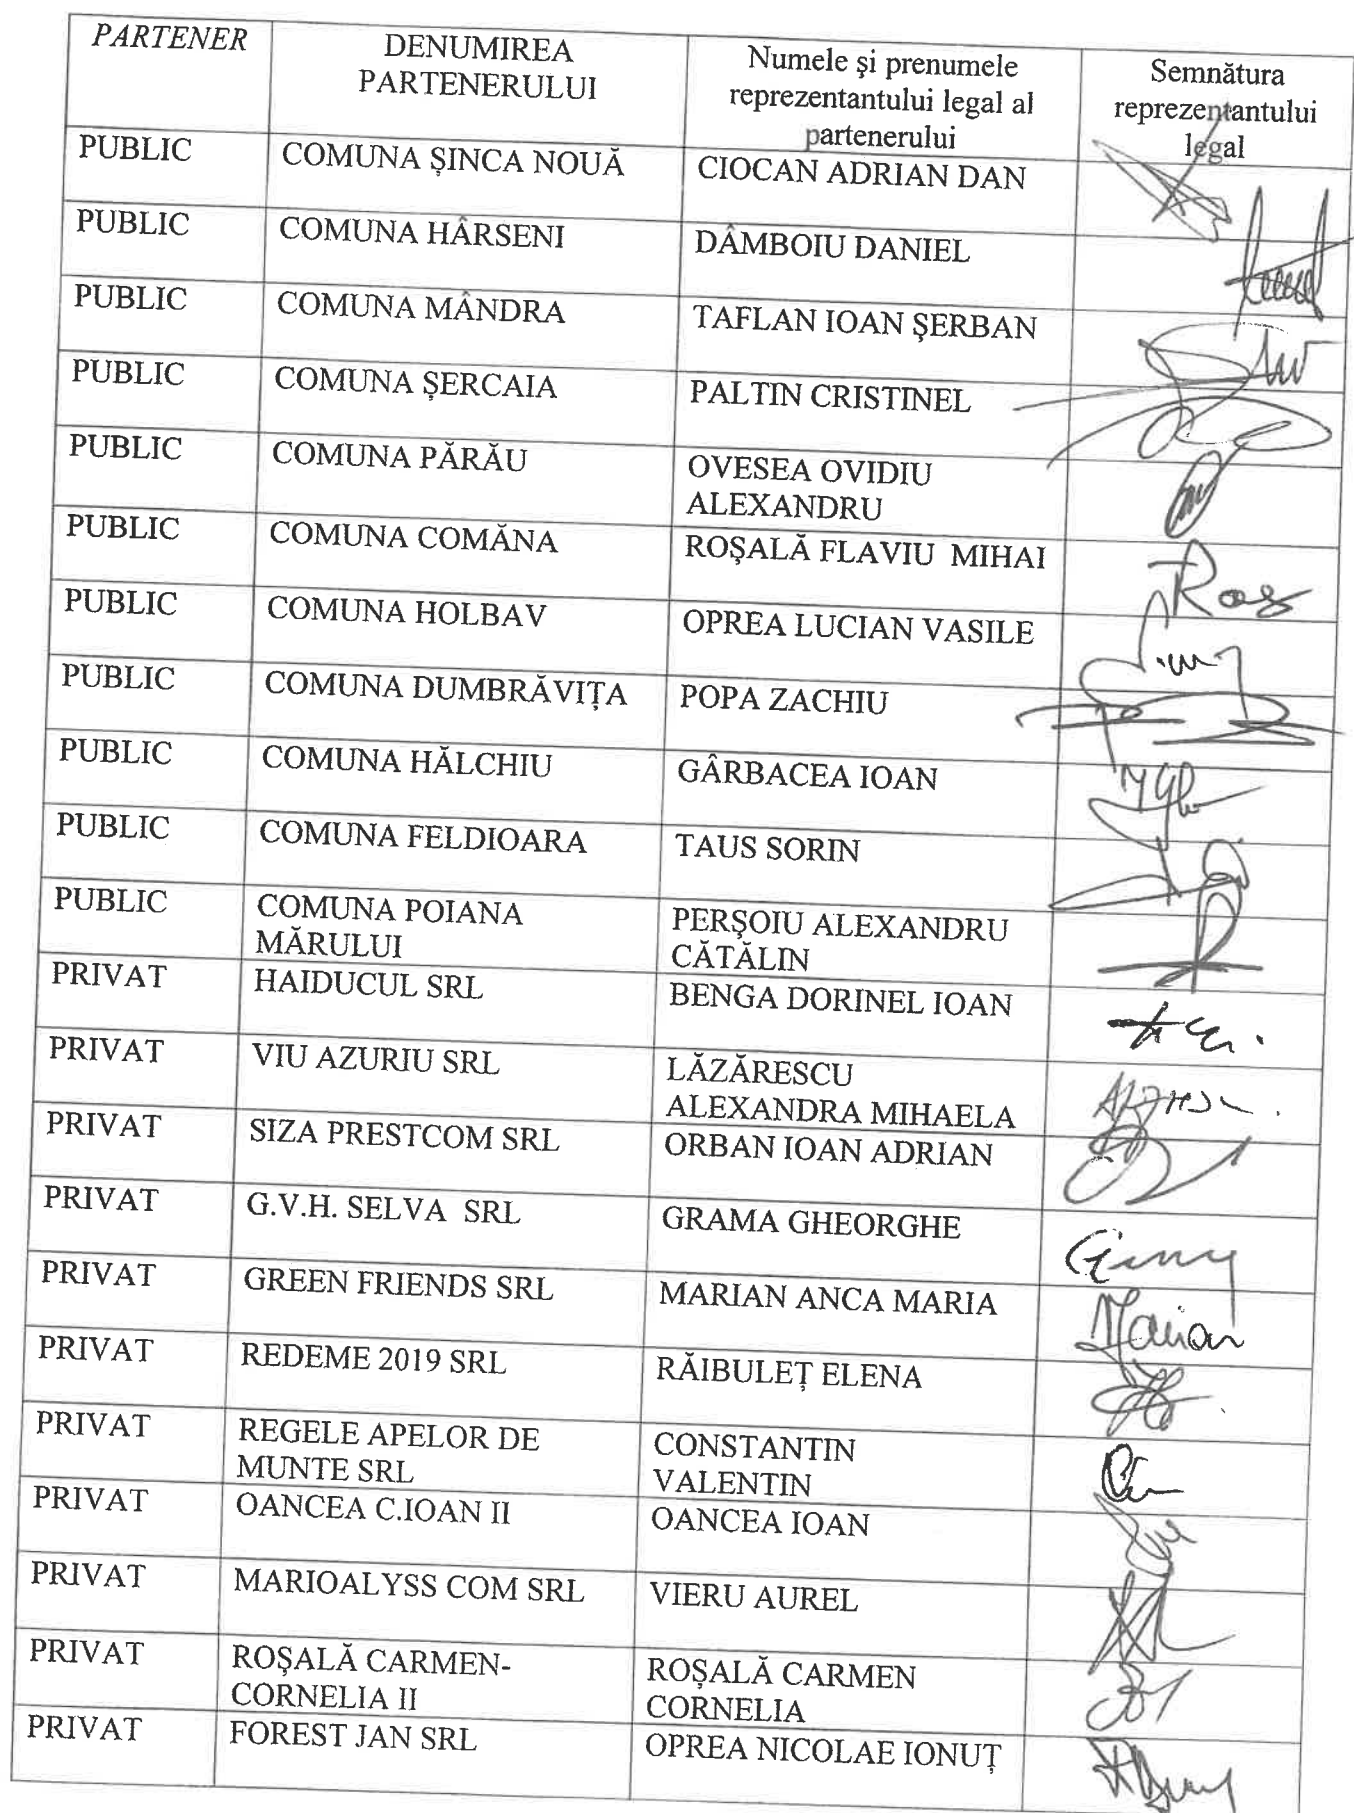 PARTENER
DENUMIREA
PARTENERULUI
Numele şi prenumele
reprezentantului legal al
partenerului
Semnătura
reprezentantului
legal
PUBLIC
COMUNA ȘINCA NOUĂ
CIOCAN ADRIAN DAN
PUBLIC
COMUNA HÂRSENI
DÂMBOIU DANIEL
PUBLIC
COMUNA MÂNDRA
TAFLAN IOAN ŞERBAN
PUBLIC
COMUNA ȘERCAIA
PALTIN CRISTINEL
PUBLIC
COMUNA PĂRĂU
OVESEA OVIDIU
ALEXANDRU
PUBLIC
COMUNA COMĂNA
ROȘALĂ FLAVIU MIHAI
PUBLIC
COMUNA HOLBAV
OPREA LUCIAN VASILE
PUBLIC
COMUNA DUMBRĂVIȚA
POPA ZACHIU
PUBLIC
COMUNA HĂLCHIU
GÂRBACEA IOAN
PUBLIC
COMUNA FELDIOARA
TAUS SORIN
PUBLIC
COMUNA POIANA
MĂRULUI
PERŞOIU ALEXANDRU
CĂTĂLIN
PRIVAT
HAIDUCUL SRL
BENGA DORINEL IOAN
PRIVAT
VIU AZURIU SRL
LĂZĂRESCU
ALEXANDRA MIHAELA
PRIVAT
SIZA PRESTCOM SRL
ORBAN IOAN ADRIAN
PRIVAT
G.V.H. SELVA SRL
GRAMA GHEORGHE
PRIVAT
GREEN FRIENDS SRL
MARIAN ANCA MARIA
Marian
PRIVAT
REDEME 2019 SRL
RĂIBULEȚ ELENA
PRIVAT
REGELE APELOR DE
MUNTE SRL
CONSTANTIN
VALENTIN
PRIVAT
OANCEA C.IOAN II
OANCEA IOAN
PRIVAT
MARIOALYSS COM SRL
VIERU AUREL
PRIVAT
ROȘALĂ CARMEN-
CORNELIA II
ROȘALĂ CARMEN
CORNELIA
PRIVAT
FOREST JAN SRL
OPREA NICOLAE IONUȚ